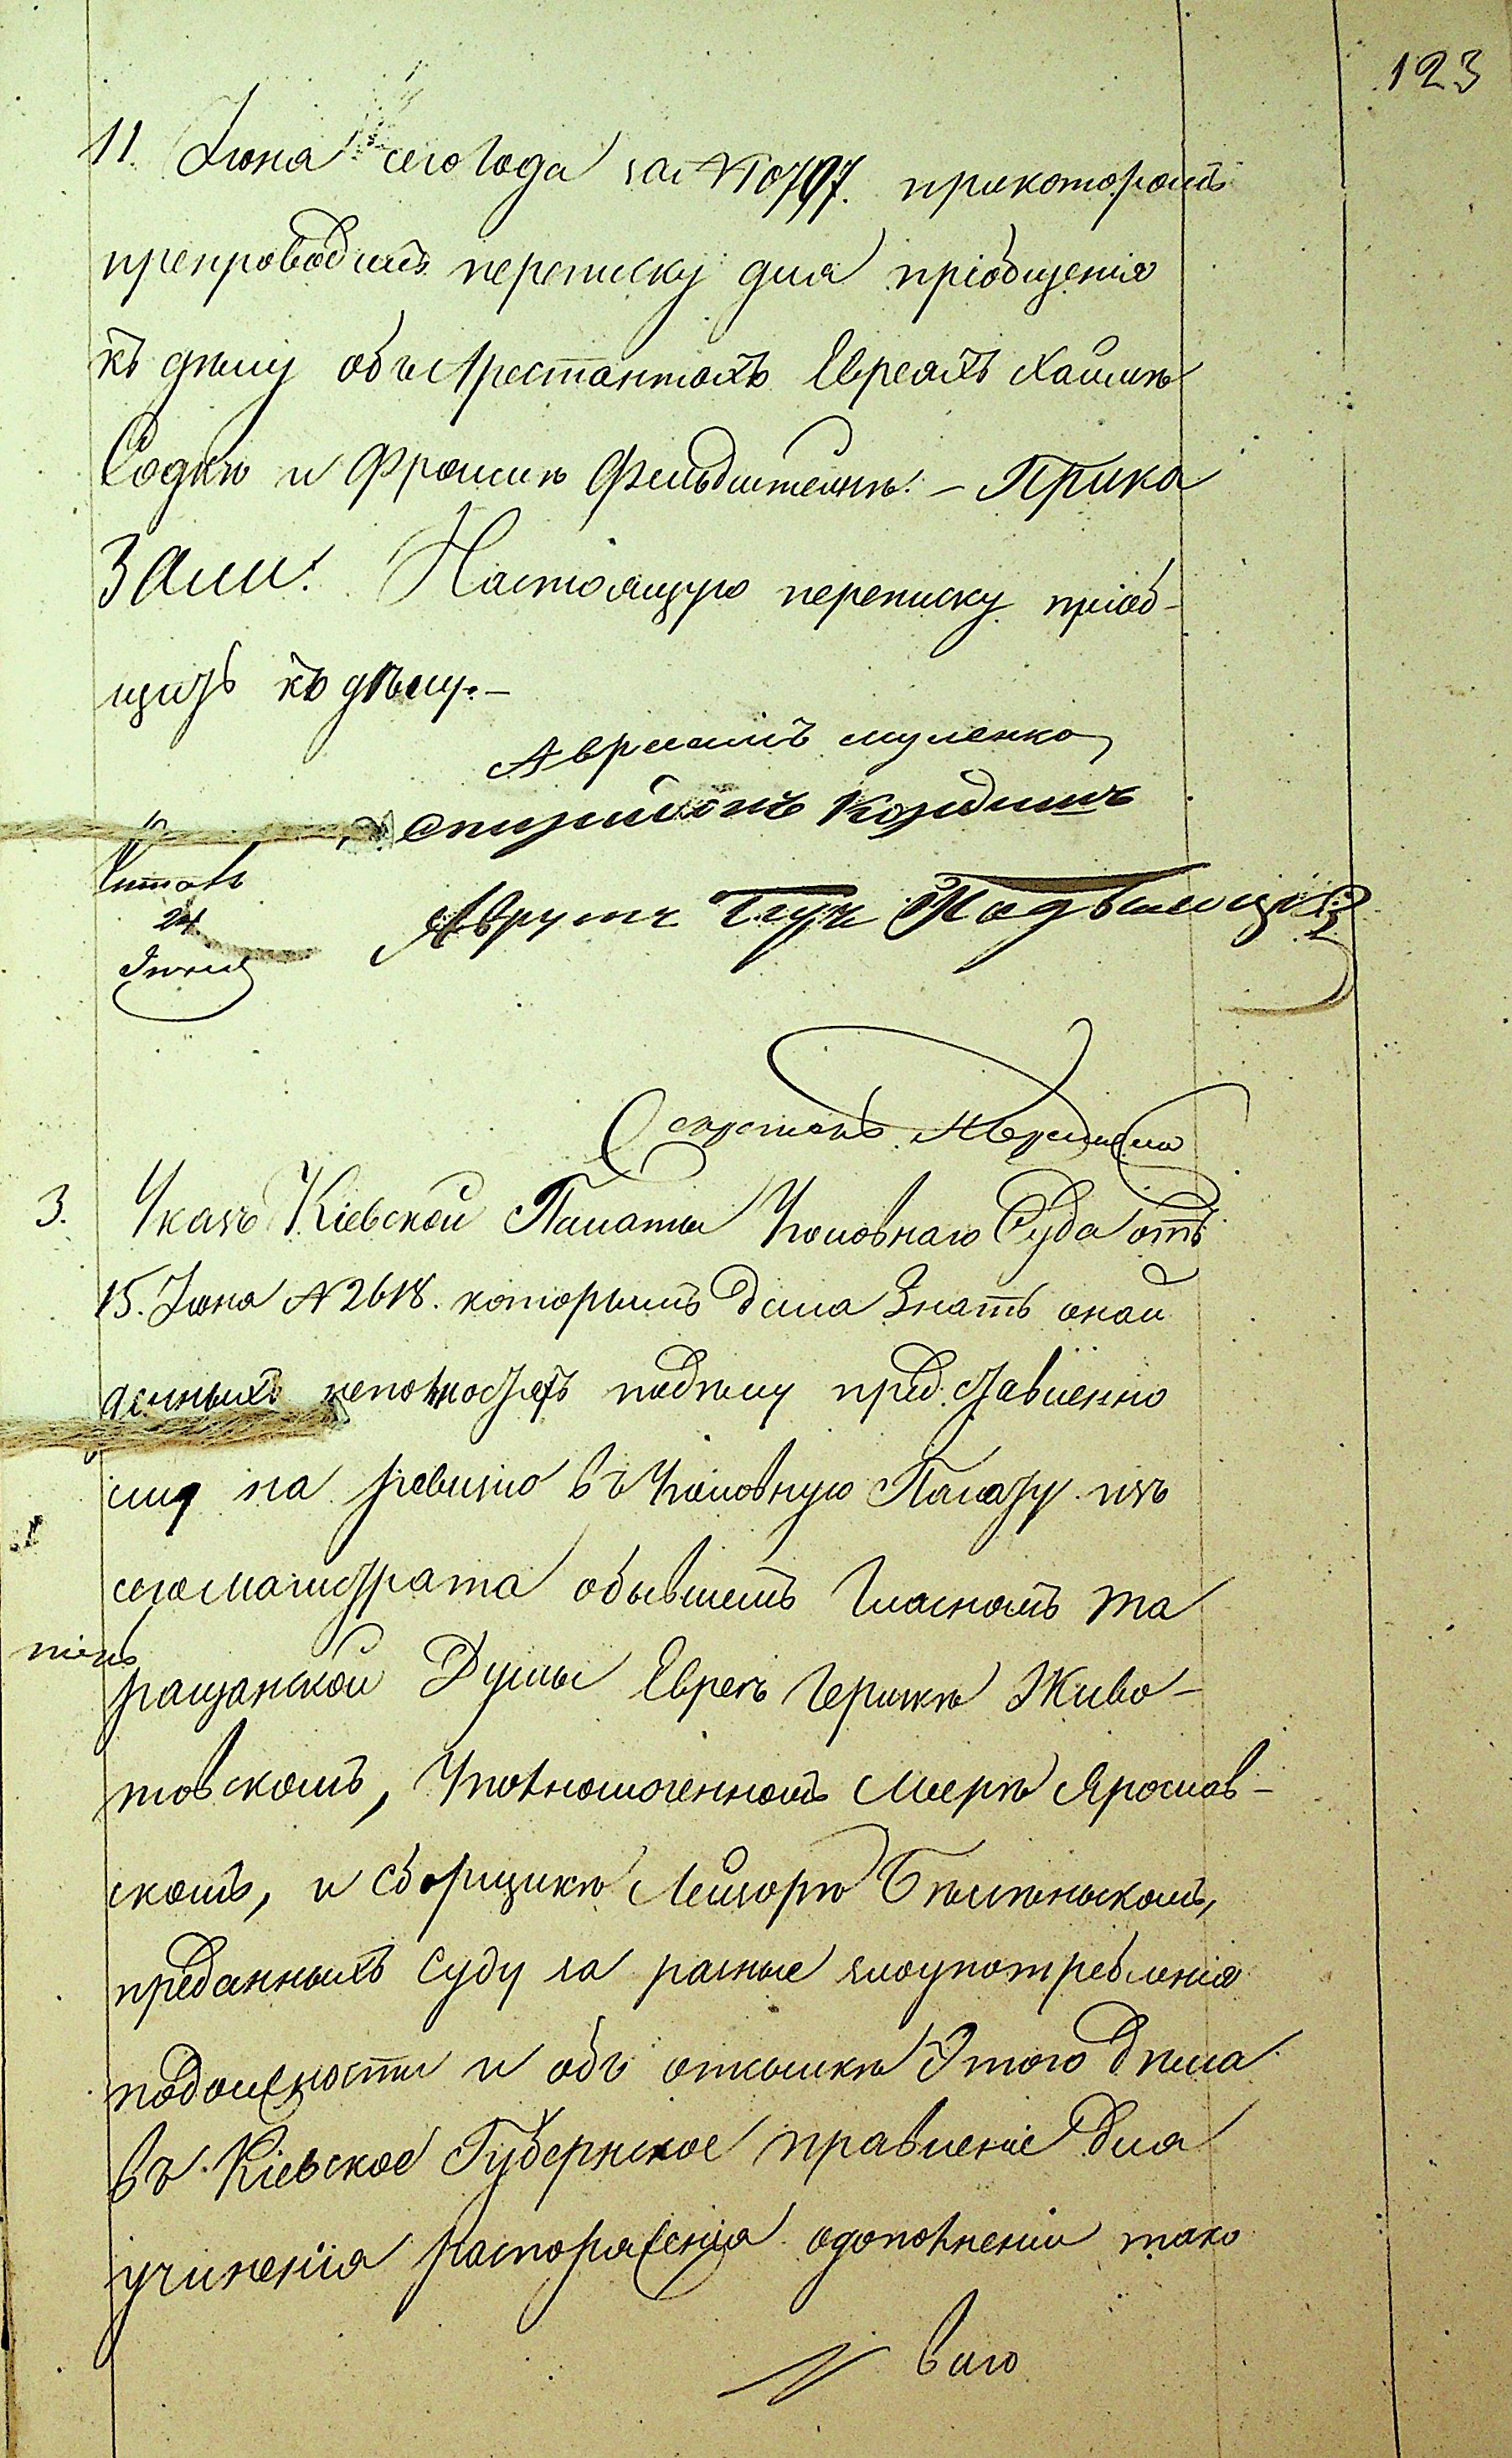 123
11. Іюня сего года за № 797. прикоторомъ
препроводитъ переписку для пріобщенія
къ дѣлу объ Арестантахъ Евреяхъ Хаимѣ
и Фроимѣ Фельдштейнѣ. – Прика
зали: Настоящую переписку пріоб-
щить къ дѣлу. –
Читалъ
24
Іюня
Секретарь
3. Указъ Кіевской Палаты Уголовнаго Суда отъ
15. Іюня № 2618. которымъ дала знать онай
денныхъ неполностяхъ подѣлу представленно
му на ревизію въ Уголовную Палату изъ
сего Магистрата обывшемъ Гласномъ та
ращанской Думы Евреѣ Гершкѣ Живо-
товскомъ, Уполномоченномъ Меерѣ Ярослав-
скомъ, и сборщикѣ Лейзорѣ
преданныхъ суду за разные злоупотребленія
подолжности и объ отсылкѣ Этого дѣла
въ Кіевское Губернское правленіе для
учиненія распоряженія одополненіи тако
ваго